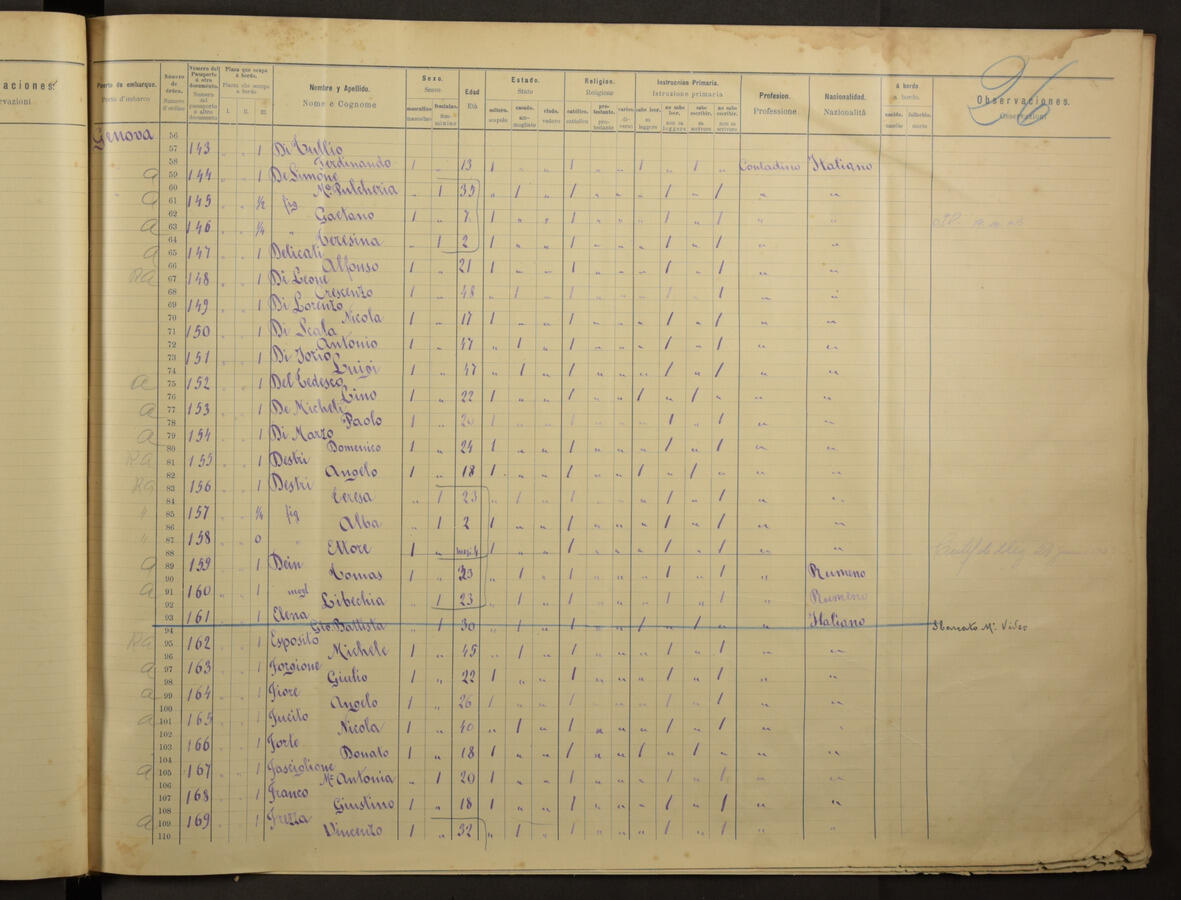 aciones.
rvazioni
26
Puerto de embarque.
Porto d'imbarco
Número de órden.
Numero d'ordine
Número del Pasaporte ú otro documento.
Numero del passaporto o altro documento
Plaza que ocupa á bordo.
Piazza che occupa a bordo
I. II. III
Nombre y Apellido.
Nome e Cognome
Sexo.
Sesso
masculino
maschino
femenino.
femminino
Edad
Età
Estado.
Stato
soltero.
scapolo
casado.
ammogliato
viudo.
vedovo
Religion.
Religione
católica.
cattolica
protestante
protestante
varios.
diverse
Instruccion Primaria.
Istruzione primaria
sabe leer.
sa leggere
no sabe leer.
non sa leggere
sabe escribir.
sa scrivere
no sabe escribir.
non sa scrivere
Profesion.
Professione
Nacionalidad.
Nazionalità
á bordo
a bordo.
nacido.
fallecido.
morto
Observaciones.
Osservazioni
Genova
56
57 143 " " 1 Di Tullio
58 Ferdinando 1 " 13 1 " " 1 " " 1 " 1 " Contadino Italiano
a 59 144 " " 1 De Simone
60 Ma. Pulcheria " 1 35 " 1 " 1 " " " 1 " 1 " "
a 61 145 " " 1/2 fig
62 Gaetano 1 " 7 1 " " 1 " " " 1 " 1 " "
a 63 146 " " 1/4 "
64 Teresina " 1 2 1 " " 1 " " " 1 " 1 " "
a 65 147 " " 1 Delicati
66 Alfonso 1 " 21 1 " " 1 " " " 1 " 1 " "
Ra 67 148 " " 1 Di Leone
68 Crescenzo 1 " 48 " 1 " 1 " " " 1 " 1 " "
69 149 " " 1 Di Lorenzo
70 Nicola 1 " 17 1 " " 1 " " " 1 " 1 " "
71 150 " " 1 Di Scala
72 Antonio 1 " 47 " 1 " 1 " " " 1 " 1 " "
73 151 " " 1 Di Jorio
74 Luigi 1 " 47 " 1 " 1 " " " 1 " 1 " "
a 75 152 " " 1 Del Tedesco
76 Lino 1 " 22 1 " " 1 " " 1 " 1 " " "
a 77 153 " " 1 De Micheli
78 Paolo 1 " 20 1 " " 1 " " " 1 " 1 " "
a 79 154 " " 1 Di Marzo
80 Domenico 1 " 24 1 " " 1 " " " 1 " 1 " "
Ra 81 155 " " 1 Destri
82 Angelo 1 " 18 1 " " 1 " " 1 " 1 " " "
Ra 83 156 " " 1 Destri
84 Teresa " 1 23 " 1 " 1 " " " 1 " 1 " "
" 85 157 " " 1/4 fig
86 Alba " 1 2 1 " " 1 " " " 1 " 1 " "
" 87 158 " " 0 "
88 Ettore 1 " mesi 4 1 " " 1 " " " 1 " 1 " "
a 89 159 " " 1 Dein
90 Tomas 1 " 23 " 1 " 1 " " " 1 " 1 " Rumeno
a 91 160 " " 1 mogl
92 Libechia " 1 23 " 1 " 1 " " " 1 " 1 " Rumeno
93 161 " " 1 Elena
94 Gio. Battista " 1 30 " 1 " 1 " " 1 " 1 " " Italiano Sbarcato
Ra 95 162 " " 1 Esposito
96 Michele 1 " 45 " 1 " 1 " " " 1 " 1 " "
a 97 163 " " 1 Forgione
98 Giulio 1 " 22 1 " " 1 " " " 1 " 1 " "
a 99 164 " " 1 Fiore
100 Angelo 1 " 26 1 " " 1 " " " 1 " 1 " "
a 101 165 " " 1 Fucito
102 Nicola 1 " 40 " 1 " 1 " " " 1 " 1 " "
103 166 " " 1 Forte
104 Donato 1 " 18 1 " " 1 " " 1 " 1 " " "
a 105 167 " " 1 Fasciglione
106 Ma. Antonia " 1 20 " 1 " 1 " " " 1 " 1 " "
107 168 " " 1 Franco
108 Giustino 1 " 18 1 " " 1 " " " 1 " 1 " "
a 109 169 " " 1 Frezza
110 Vincenzo 1 " 32 " 1 " 1 " " " 1 " 1 " "